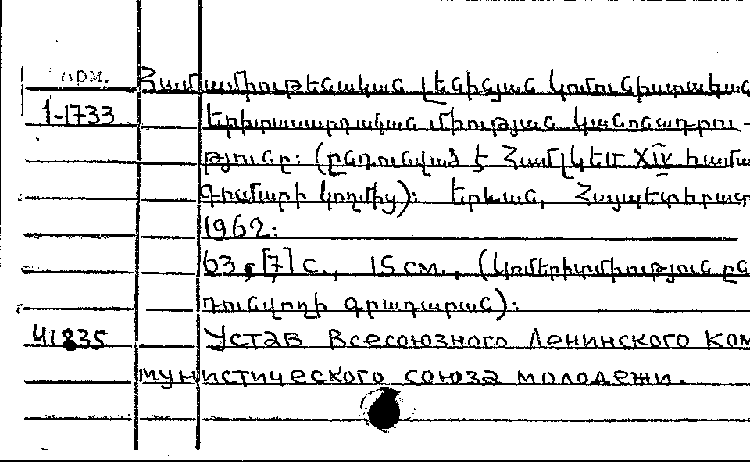 арм. Համամիութենական լենինյան կոմունիստական
1-1733 երիտասարդական միության կանոնադրու-
թյունը: (ընդունված է Համլկեմ XIV համա
գումարի կողմից): Երևան, Հայպետհրատ
1962:
63, [7] с., 15 см., (Կոմերիտմիություն ըն
դունվողի գրադարան):
41835 Устав Всесоюзного Ленинского Ком
мунистического союза молодежи.